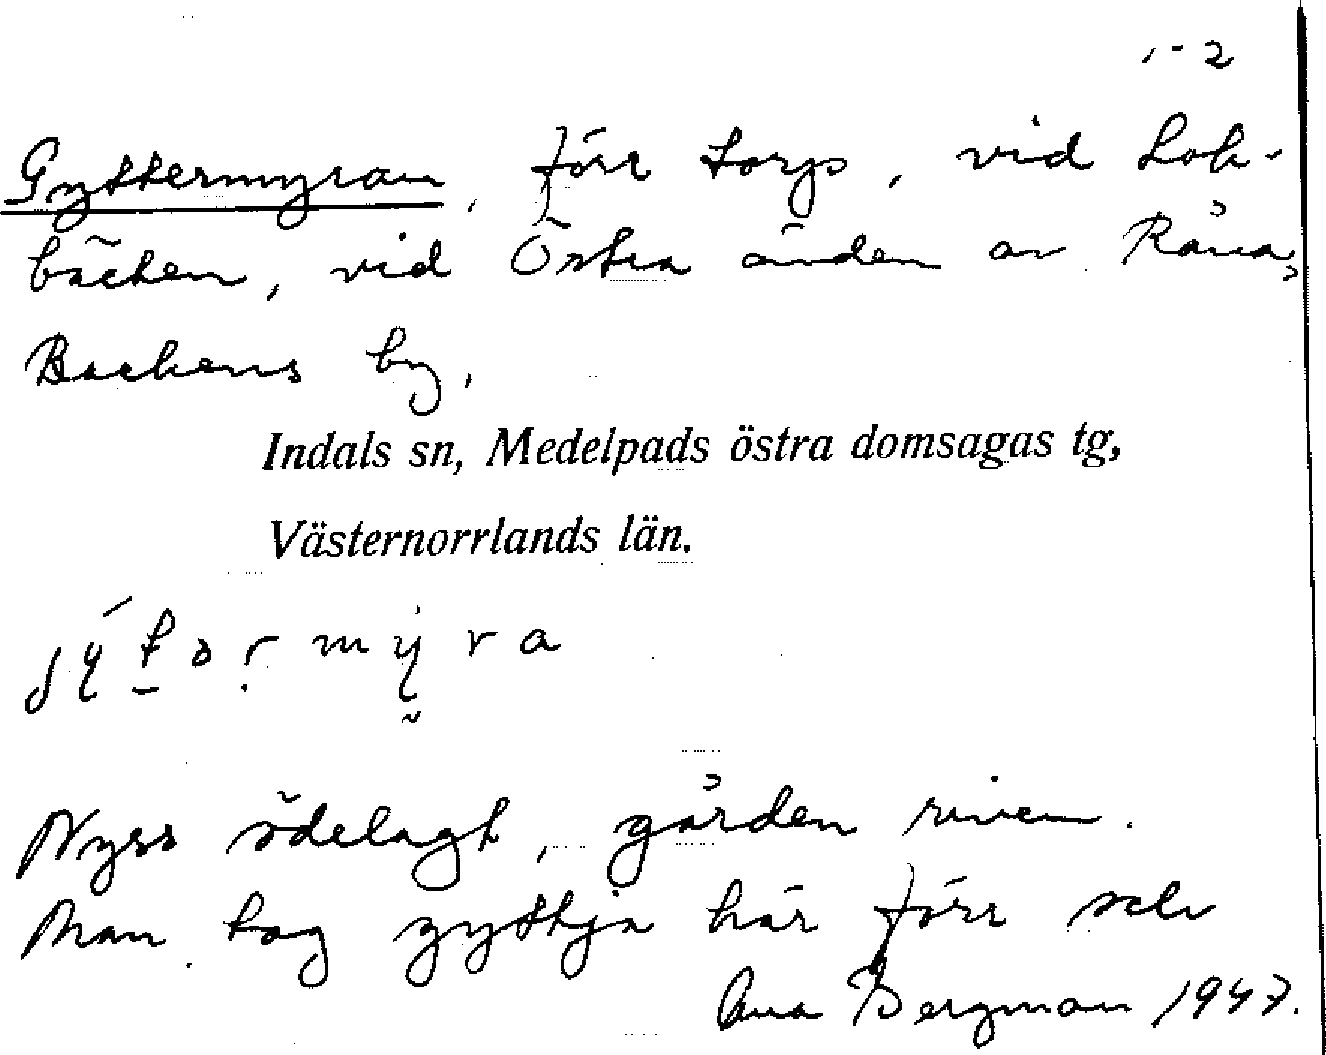 1-2
Gyttermyran, förr torp, vid Lok-
bäcken, vid Östra änden av
Backens by,
Indals sn, Medelpads östra domsagas tg,
Västernorrlands län.
Nyss ödelagt, gården riven.
Man tog gyttja här förr
Bergman 1947.